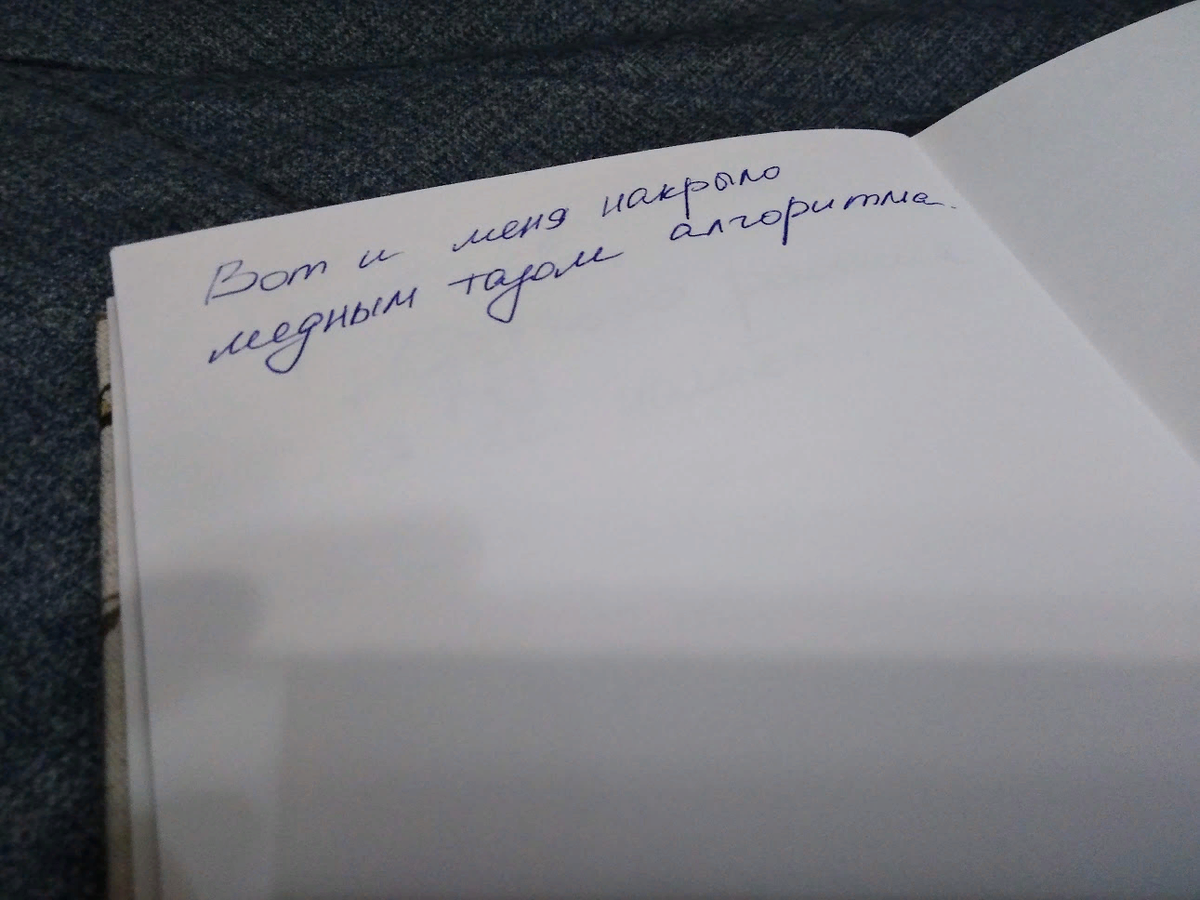 Вот и меня накрыло
медным тазом алгоритма.